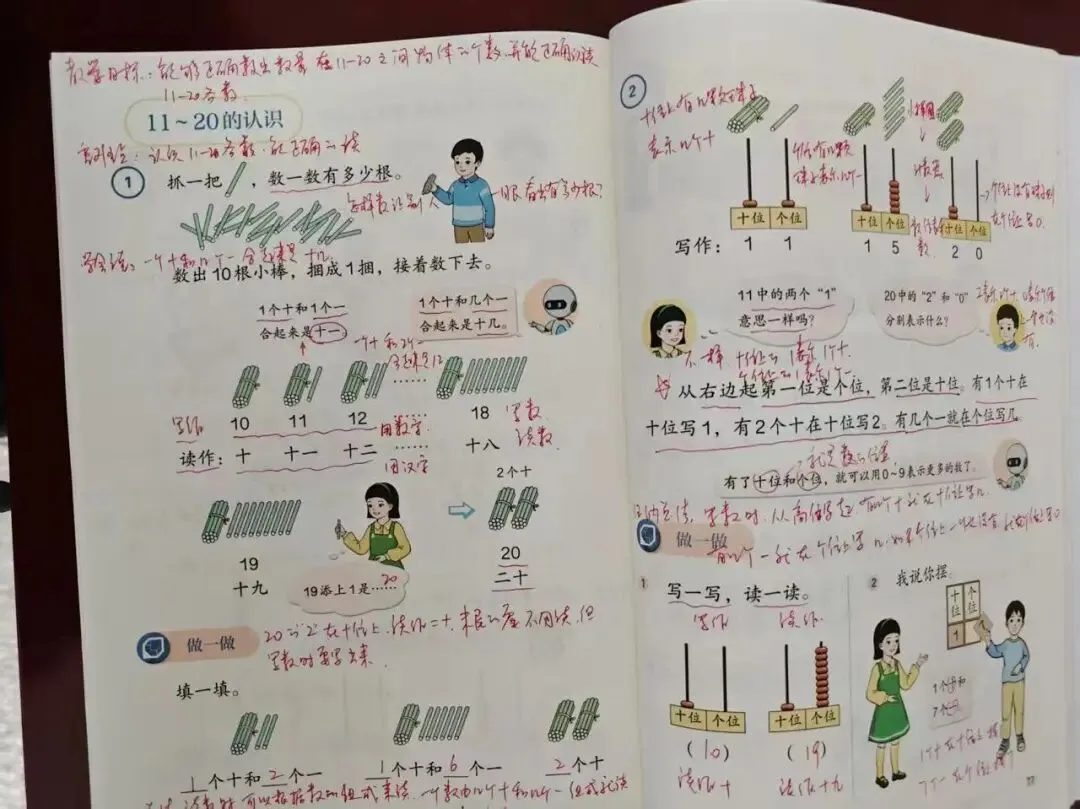 教学目标：能够正确数出数量在11-20之间物体的个数，并能正确认读
11-20各数。
11～20的认识
认识11-20各数，能正确的读
1
抓一把，数一数有多少根。
一眼看出有多少根？
一个十和几个一合起来是十几。
数出10根小棒，捆成1捆，接着数下去。
1个十和1个一
合起来是十一。
1个十和几个一
合起来是十几。
写作
10 11 12 …… 18
用数字
写数
读作：十 十一 十二 …… 十八
用汉字
读数
2个十
19
十九
19添上1是……20
20
二十
做一做
20的"2"在十位上，读作二十，末尾的零不用读，但
写数时要写出来。
填一填。
1个十和2个一
1个十和6个一
2个十
2
表示几个十
十位 个位
十位 个位
十位 个位
写作：
1 1
1 5
2 0
11中的两个“1”
意思一样吗？
20中的“2”和“0”
分别表示什么？
不一样，十位的1表示1个十，
个位的1表示1个一
从右边起第一位是个位，第二位是十位。有1个十在
十位写1，有2个十在十位写2。有几个一就在个位写几。
有了十位和个位，就可以用0～9表示更多的数了。
做一做
1
写一写，读一读。
写作 读作
十位 个位
十位 个位
(10)
(19)
读作十
读作十九
2
我说你摆。
十位 个位
1
1个十和
7个一